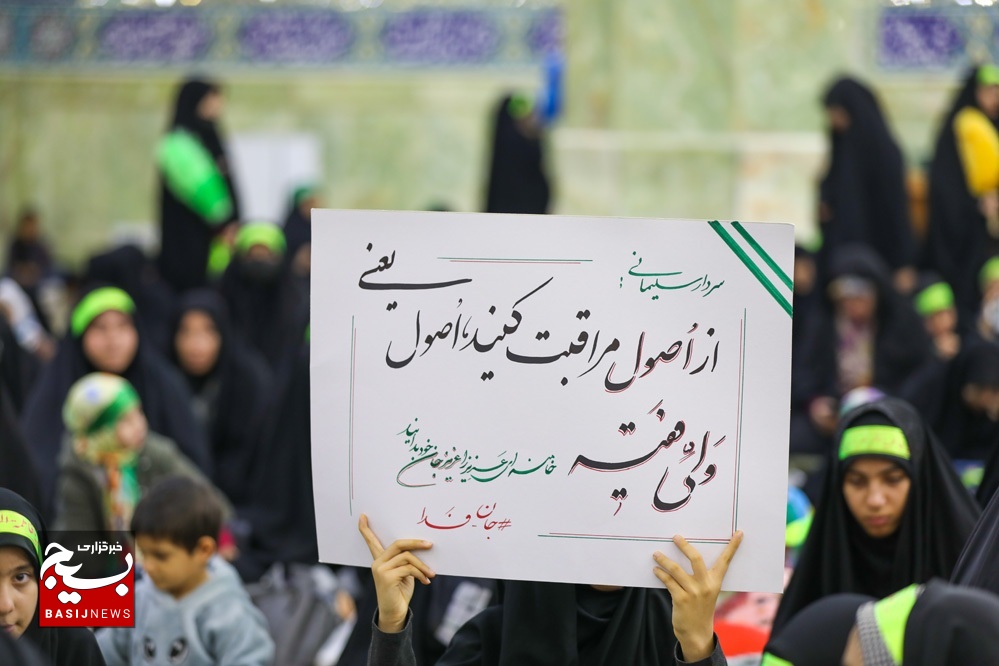 سردار سلیمانی:
از اُصول مراقبت کنید، اُصول یعنی
وَلیِّ فَقیه
خامنه ای عزیز را عزیز جان خود بدانید
#جان_فدا
خبرگزاری
بسیج
BASIJNEWS